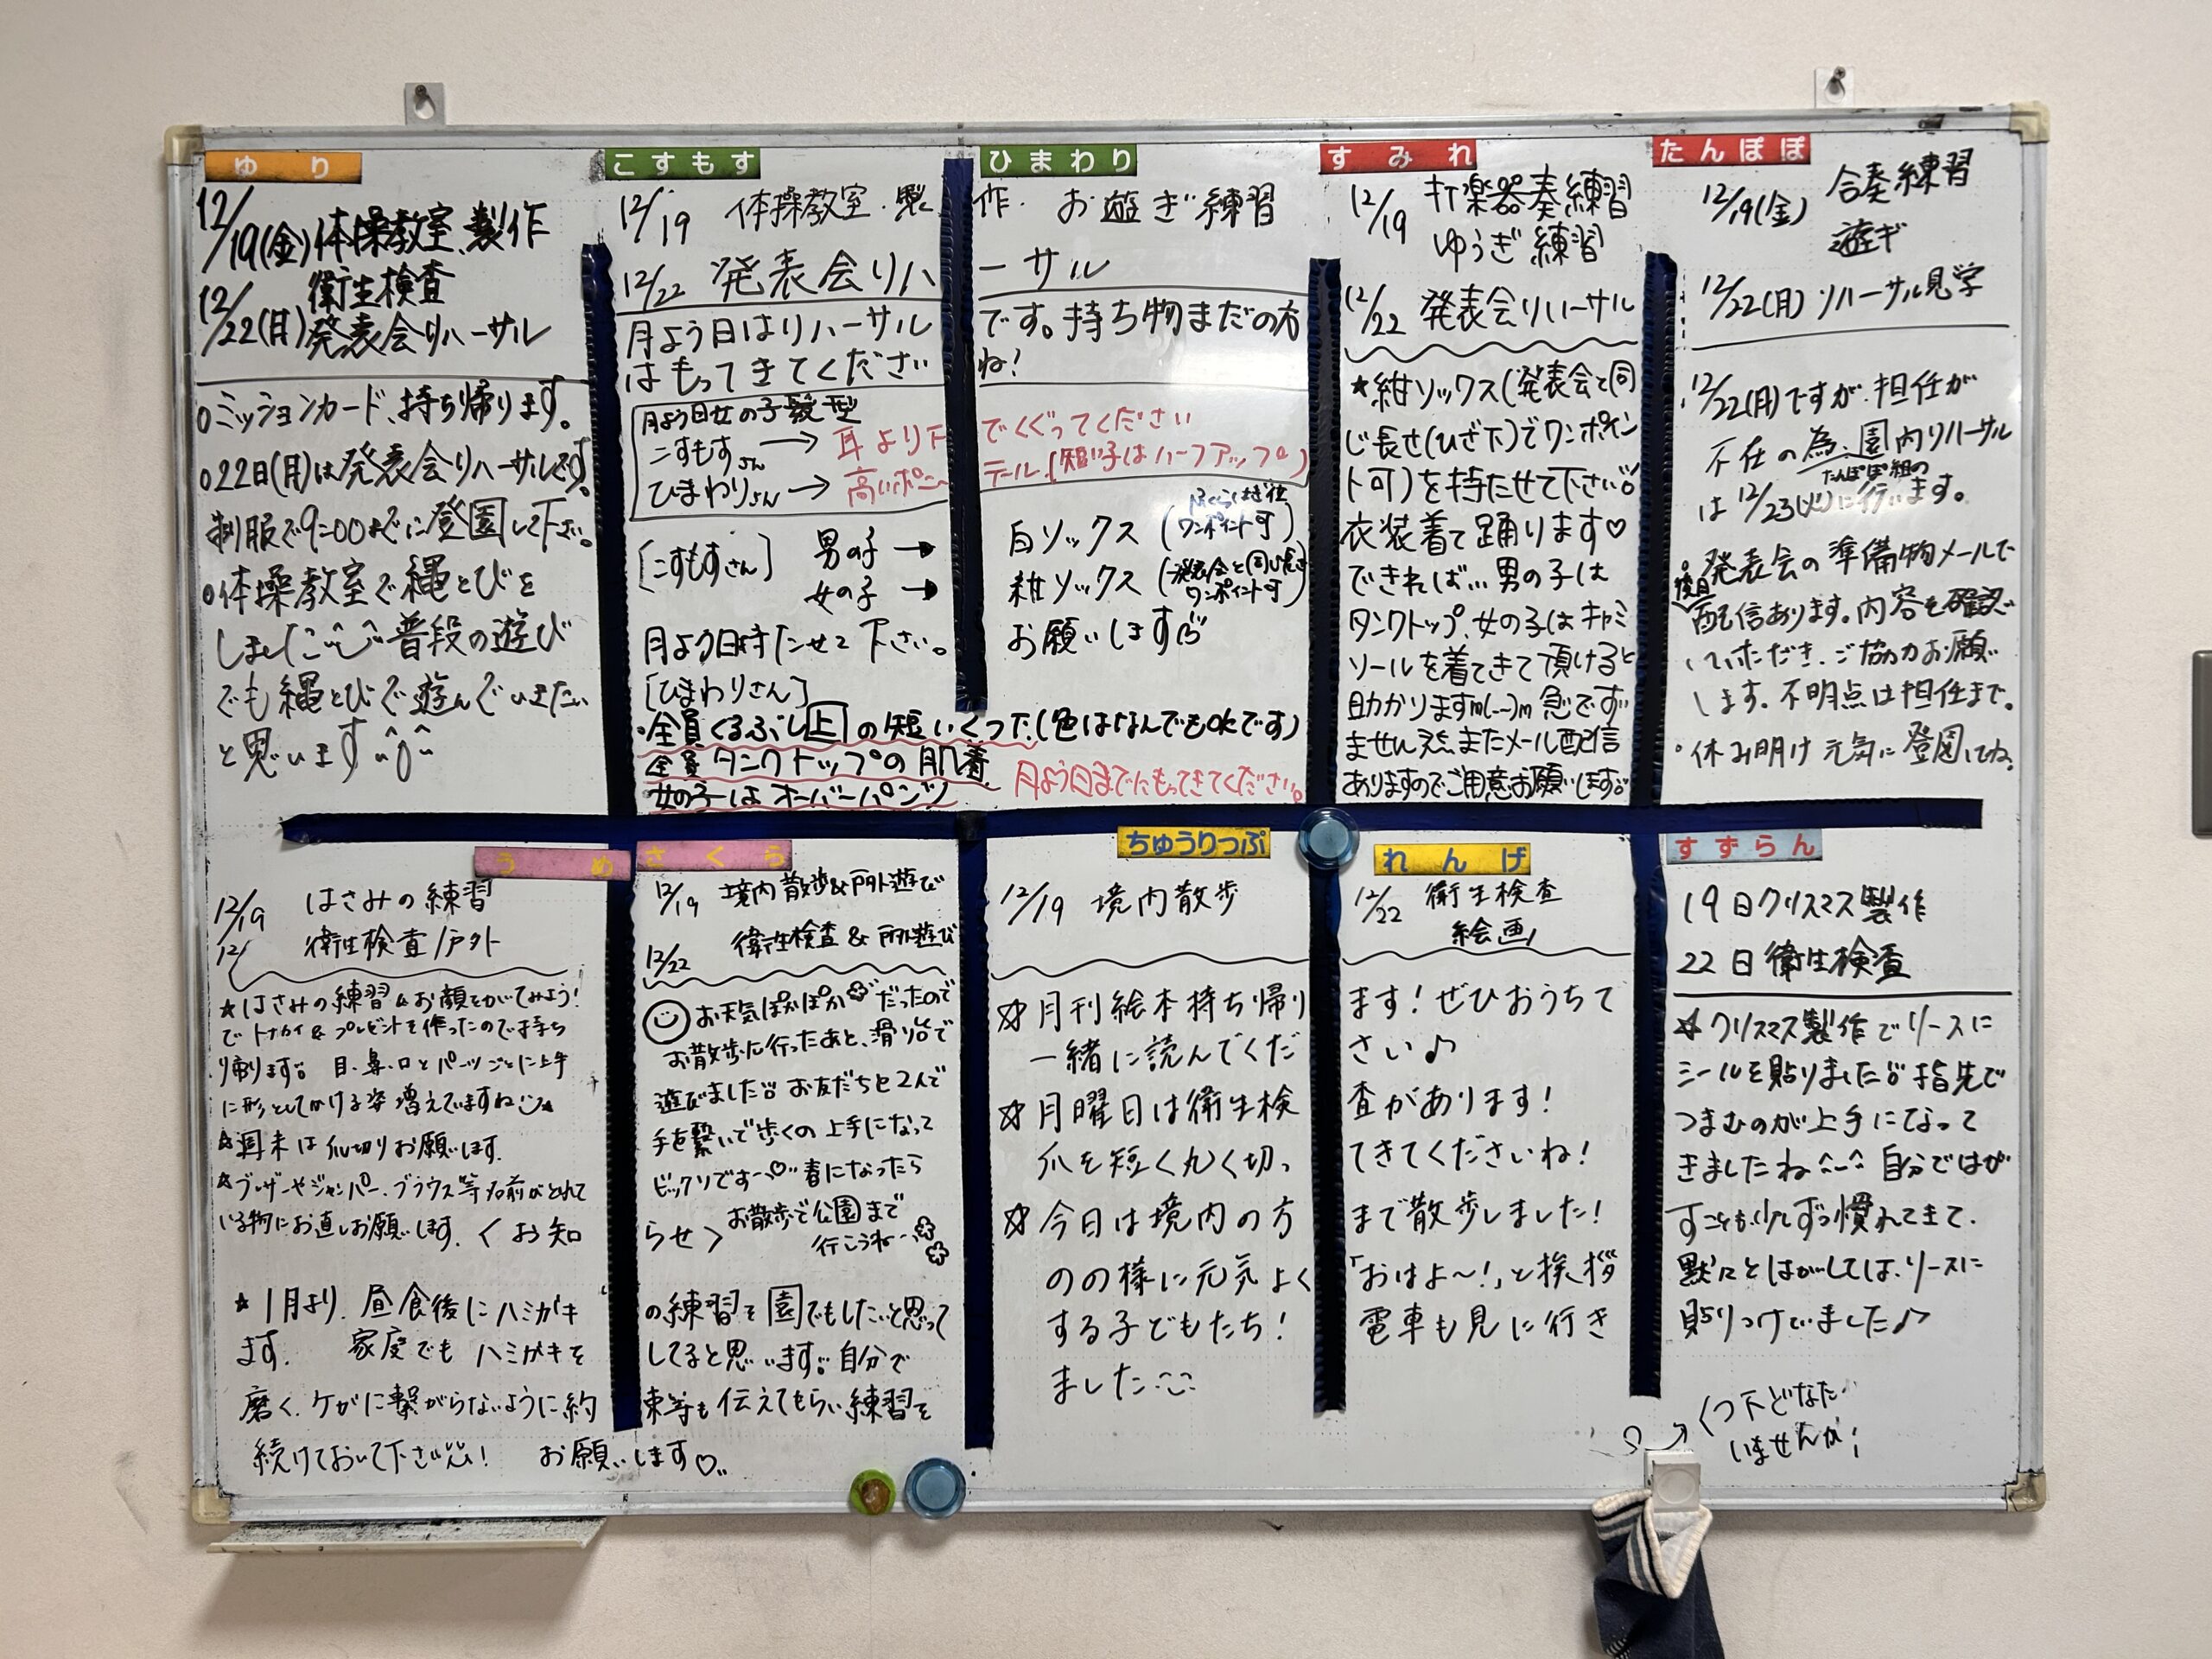 ゆり
12/19(金)体操教室、製作
衛生検査
12/22(月)発表会リハーサル
○ミッションカード、持ち帰ります。
○22日(月)は発表会リハーサルです。
制服で9:00までに登園して下さい。
○体操教室で縄とびを
しました 普段の遊び
でも縄とびで遊んでいきたい
と思います
こすもす
ひまわり
12/19 体操教室・製作・お遊ぎ練習
12/22 発表会リハーサル
月よう日はリハーサルです。持ち物まだの方
はもってきてくださいね!
月よう日女の子髪型
こすもすさん→耳より下でくくってください
ひまわりさん→高いポニーテール(短い子はハーフアップ)
[こすもすさん] 男の子→白ソックス(ふくらはぎ位ワンポイント可)
女の子→紺ソックス(発表会と同じ長さワンポイント可)
月よう日持たせて下さい。お願いします
[ひまわりさん]
・全員くるぶし上の短いくつ下(色はなんでもOKです)
全員タンクトップの肌着
女の子はオーバーパンツ
月よう日までにもってきてください。
すみれ
12/19 打楽器奏練習
ゆうぎ練習
12/22 発表会リハーサル
★紺ソックス(発表会と同
じ長さ(ひざ下)でワンポイン
ト可)を持たせて下さい。
衣装着て踊ります♡
できれば…男の子は
タンクトップ、女の子はキャミ
ソールを着てきて頂けると
助かりますm(_ _)m 急ですみ
ませんが、またメール配信
ありますのでご用意お願いします。
たんぽぽ
12/19(金) 合奏練習
遊ギ
12/22(月) リハーサル見学
12/22(月)ですが、担任が
不在の為、園内リハーサル
たんぽぽ組の
は12/23(火)に行います。
・発表会の準備物メールで
後日
配信あります。内容を確認
していただき、ご協力お願い
します。不明点は担任まで。
・休み明け元気に登園してね。
うめ
12/19 はさみの練習
12/ 衛生検査/戸外
★はさみの練習&お顔をかいてみよう!
でトナカイ&プレゼントを作ったので持ち
帰ります。目・鼻・口とパーツごとに上手
に形としてかける姿増えていますね
★週末は爪切りお願いします。
★ブレザーやジャンパー、ブラウス等名前がとれて
いる物にお直しお願いします。
さくら
12/19 境内散歩&戸外遊び
12/22 衛生検査&戸外遊び
お天気ぽかぽかだったので
お散歩に行ったあと、滑り台で
遊びました。お友だちと2人で
手を繋いで歩くの上手になって
ビックリです♡ 春になったら
お散歩で公園まで
行こうね
<お知らせ>
★1月より、昼食後にハミガキの練習を園でもしたいと思って
ます。 家庭でもハミガキをしてると思います。自分で
磨く、ケガに繋がらないように約束等も伝えてもらい練習を
続けておいて下さい! お願いします♡
ちゅうりっぷ
れんげ
12/19 境内散歩
12/22 衛生検査
絵画
☆月刊絵本持ち帰ります!ぜひおうちで
一緒に読んでください♪
☆月曜日は衛生検査があります!
爪を短く丸く切ってきてくださいね!
☆今日は境内の方まで散歩しました!
のの様に元気よく「おはよ〜!」と挨拶
する子どもたち!電車も見に行き
ました
すずらん
19日クリスマス製作
22日衛生検査
☆クリスマス製作でリースに
シールを貼りました。指先で
つまむのが上手になって
きましたね^-^ 自分ではが
すことも少しずつ慣れてきて、
黙々とはがしては、リースに
貼りつけていました♪
くつ下どなたか
いませんか!